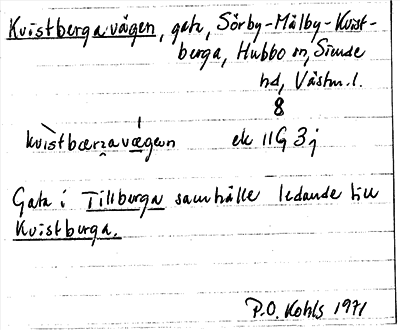 Kvistbergavägen, gata, Sörby-Målby-Kvist-
berga, Hubbo sn, Siende
hd, Västm. l.
8
ek 11G 3j
Gata i Tillberga samhälle ledande till
Kvistberga.
P.O. Kohls 1971